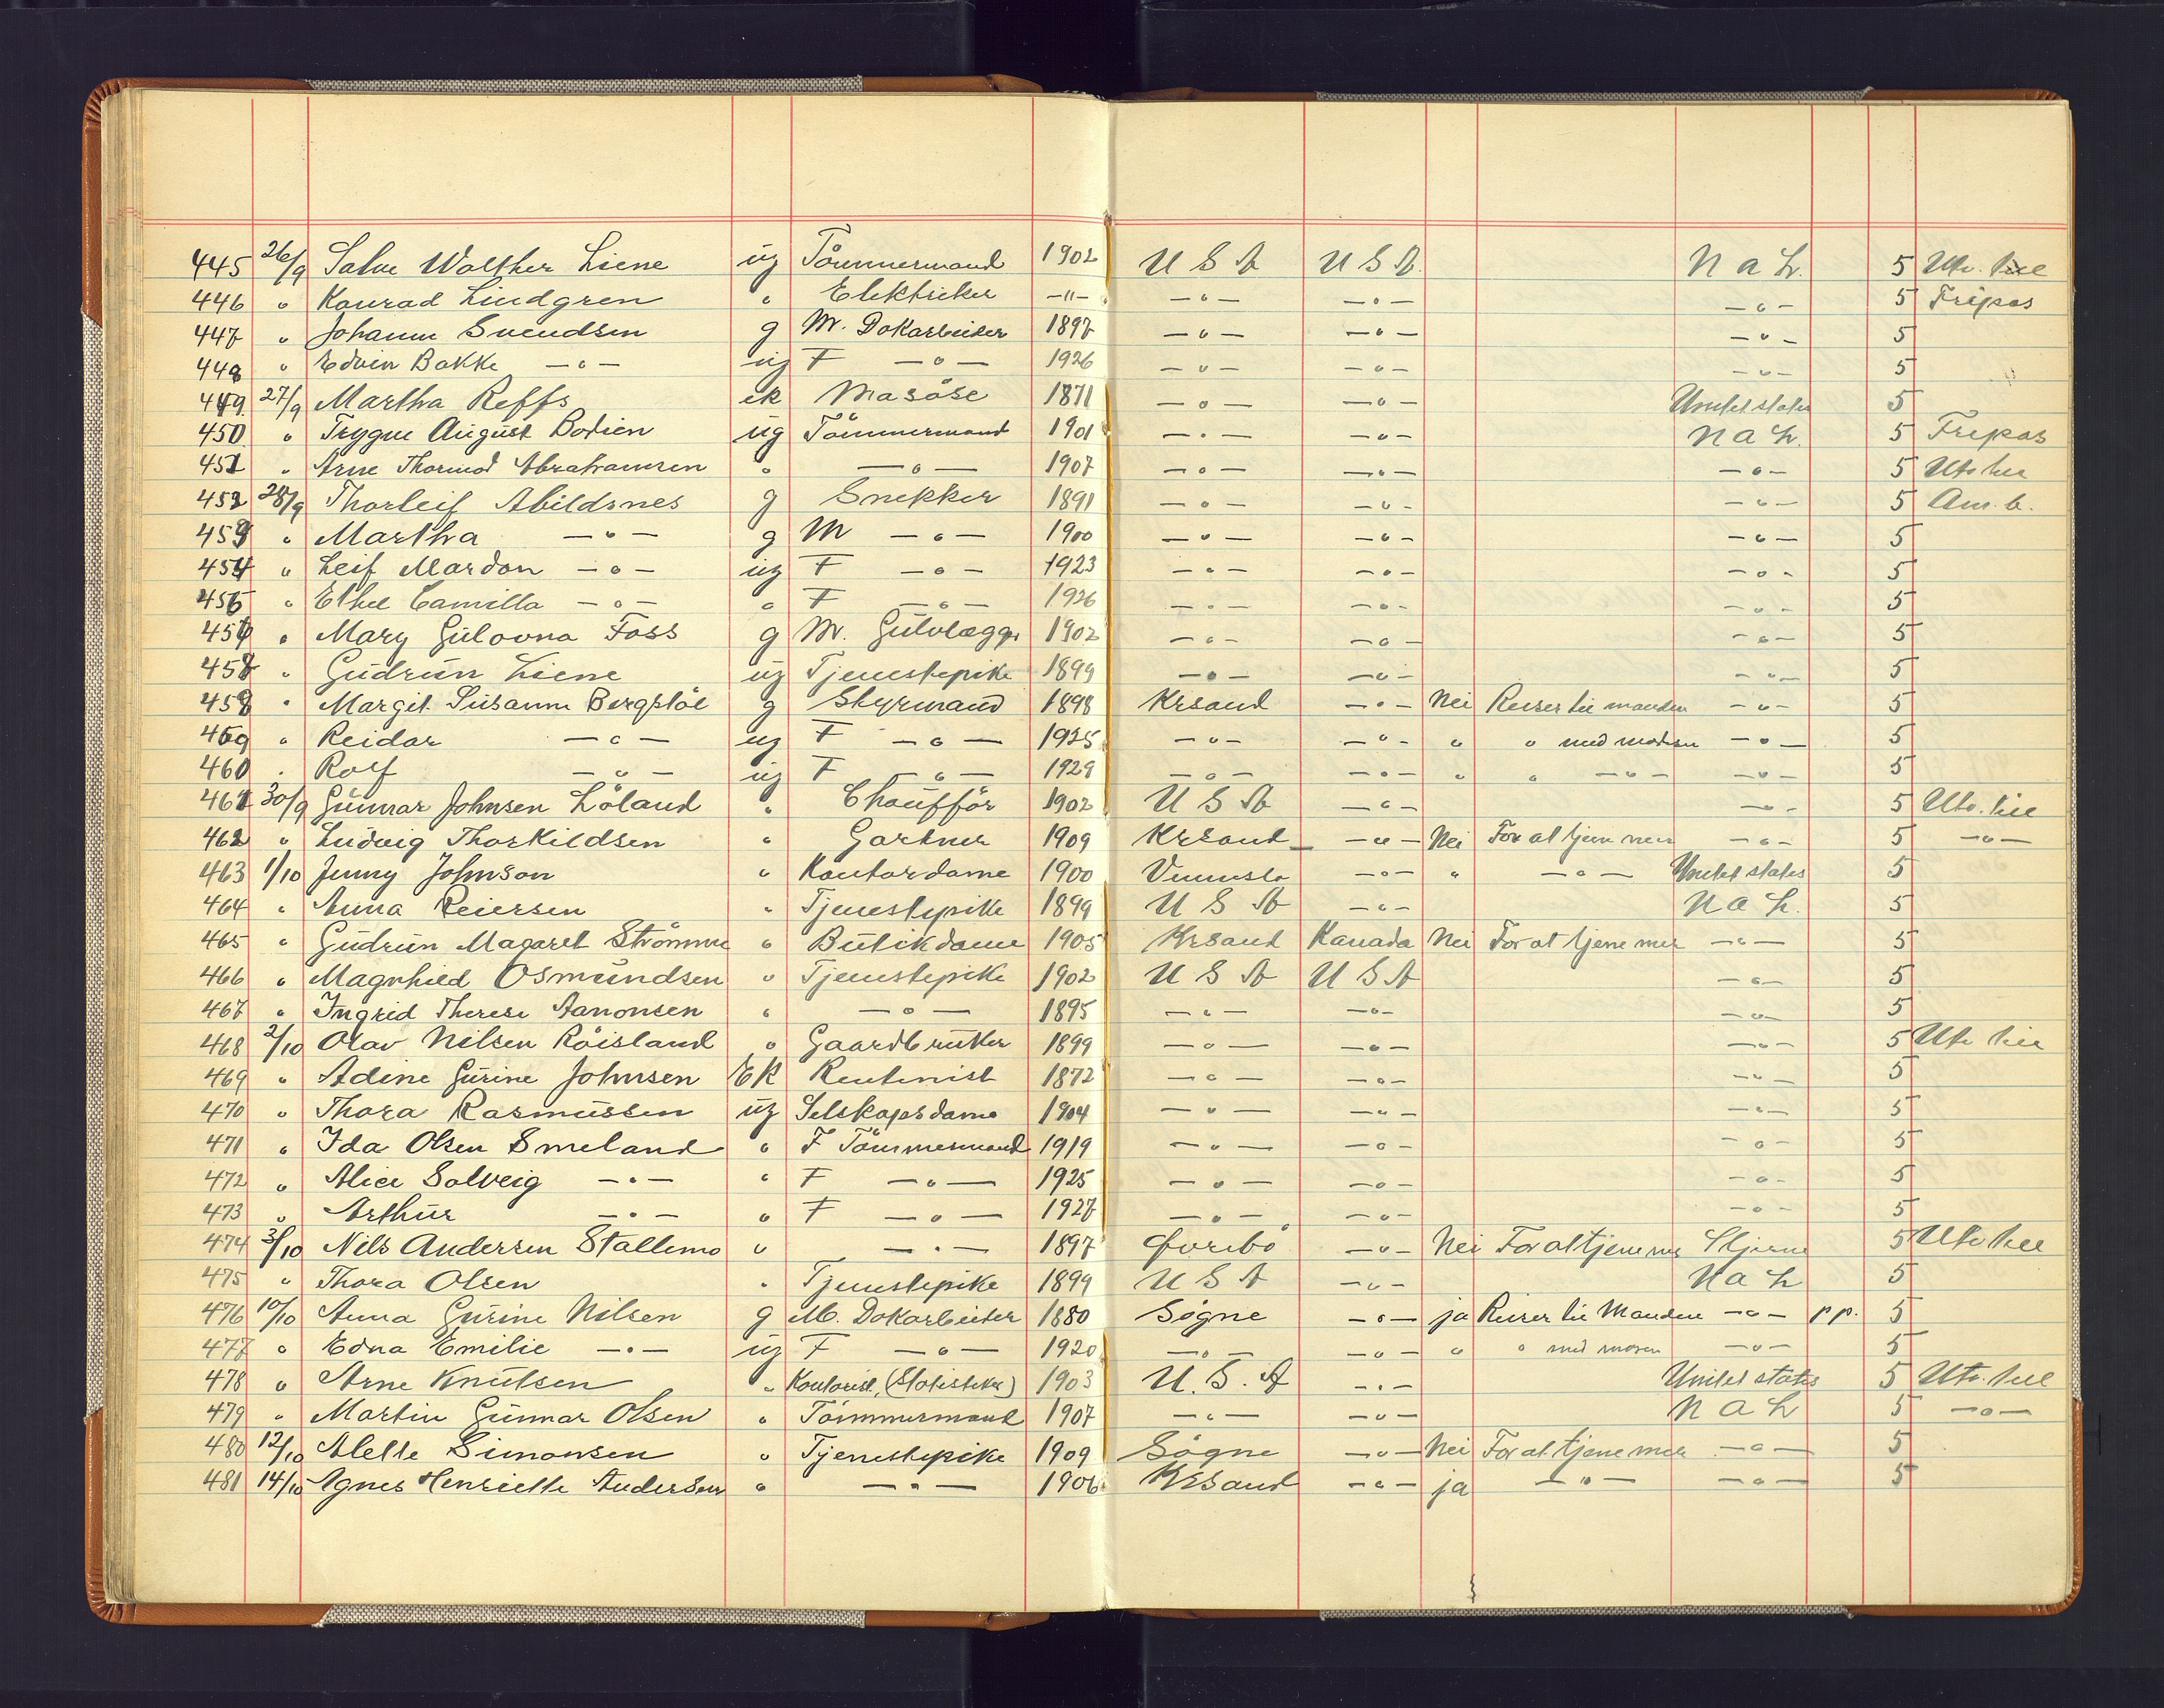 445 26/9 Salve Walther Liene ug Tømmermand 1902 U S A U S A. N a L. 5 Utv. till
446 " Konrad Lindgren " Elektriker —"— —"— —"— —"— 5 Fripas
447 " Johanne Svendsen g M. Dokarbeider 1897 —"— —"— —"— 5
448 " Edvin Bakke —"— ug F —"— 1926 —"— —"— —"— 5
449 27/9 Martha Reffs ek Masöse 1871 —"— —"— Unitet states 5
450 " Trygve August Bodien ug Tömmermand 1901 —"— —"— N a L. 5 Fripas
451 " Arne Thormod Abrahamsen " —"— 1907 —"— —"— —"— 5 Utv till
452 28/9 Thorleif Abildsnes g Snekker 1891 —"— —"— —"— 5 Am. b.
453 " Martha —"— g M —"— 1900 —"— —"— —"— 5
454 " Leif Mardon —"— ug F —"— 1923 —"— —"— —"— 5
455 " Ethel Camilla —"— " F —"— 1926 —"— —"— —"— 5
456 " Mary Gulovna Foss g M. Gulvlægger 1902 —"— —"— —"— 5
457 " Gudrun Liene ug Tjenestepike 1899 —"— —"— —"— 5
458 " Margit Susanne Bergstøl g Styrmand 1898 Krsand —"— Nei Reiser til manden —"— 5
459 " Reidar —"— ug F —"— 1925 —"— —"— " " med moderen —"— 5
460 " Rolf —"— ug F —"— 1929 —"— —"— " " —"— —"— 5
461 30/9 Gunnar Johnsen Löland " Chaufför 1902 U S A —"— —"— 5 Utv. till
462 " Ludvig Thorkildsen " Gartner 1909 Krsand —"— Nei For at tjene mer —"— 5 —"—
463 1/10 Jenny Johnson " Kontordame 1900 Vennesla —"— " —"— Unitet states 5
464 " Anna Reiersen " Tjenestepike 1899 U S A —"— N a L. 5
465 " Gudrun Magaret Strömme " Butikdame 1905 Krsand Kanada Nei For at tjene mer —"— 5
466 " Magnhild Osmundsen " Tjenestepike 1902 U S A U S A —"— 5
467 " Ingrid Therese Aanonsen " —"— 1895 —"— —"— —"— 5
468 2/10 Olav Nilsen Röisland " Gaardbruker 1899 —"— —"— —"— 5 Utv till
469 " Adine Gurine Johnsen EK Rentenist 1872 —"— —"— —"— 5
470 " Thora Rasmussen ug Selskapsdame 1904 —"— —"— —"— 5
471 " Ida Olsen Smeland " F Tömmermand 1919 —"— —"— —"— 5
472 " Alice Solveig —"— " F —"— 1925 —"— —"— —"— 5
473 " Arthur —"— " F —"— 1927 —"— —"— —"— 5
474 3/10 Nils Andersen Stallemo " —"— 1897 —"— Nei For at tjene mer Stjerne 5 Utv till
475 " Thora Olsen " Tjenestepike 1899 U S A —"— N a L 5
476 10/10 Anna Gurine Nilsen g M. Dokarbeider 1880 Søgne —"— ja Reiser til Manden —"— pp. 5
477 " Edna Emilie —"— ug F —"— 1920 —"— —"— " " med moren —"— 5
478 " Arne Knutsen " Kontorist, (Statistiker) 1903 U. S. A —"— Unitet states 5 Utv. till
479 " Martin Gunnar Olsen " Tömmermand 1907 —"— —"— N a L 5 —"—
480 12/10 Alette Simonsen " Tjenestepike 1909 Søgne —"— Nei For at tjene mer —"— 5
481 14/10 Agnes Henriette Andersen " —"— 1906 Krsand —"— ja —"— —"— 5